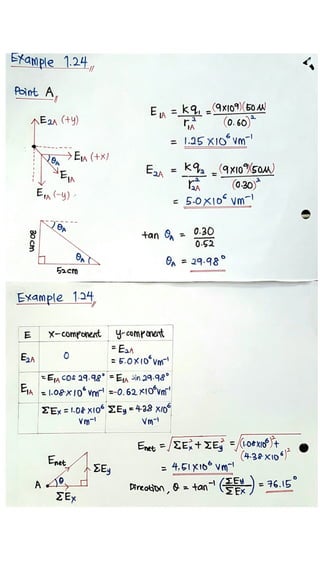 Example 1.24
Point A
E2A (+y)
θA
E1A (+x)
E1A
E1A (-y)
E1A = kq1/r1A² = (9x10⁹)(50M)/(0.60)²
= 1.25 x10⁶ Vm⁻¹
E2A = kq2/r2A² = (9x10⁹)(50M)/(0.30)²
= 5.0x10⁶ Vm⁻¹
θA
30cm
θA
52cm
tan θA = 0.30/0.52
θA = 29.98°
Example 1.24
E x-component y-component
E2A 0 = E2A
= 5.0x10⁶ Vm⁻¹
E1A = E1A cos 29.98° = E1A sin 29.98°
= 1.08 x10⁶ Vm⁻¹ = -0.62 x10⁶ Vm⁻¹
ΣEx = 1.08 x10⁶ Vm⁻¹ ΣEy = 4.38 x10⁶ Vm⁻¹
Enet
ΣEy
A θ
ΣEx
Enet = √ΣEx² + ΣEy² = √(1.08x10⁶)² + (4.38x10⁶)²
= 4.51x10⁶ Vm⁻¹
Direction, θ = tan⁻¹ (ΣEy/ΣEx) = 76.15°